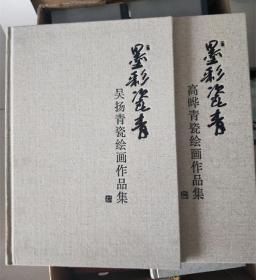 墨彩瓷青
吴扬青瓷绘画作品集
墨彩瓷青
高晔青瓷绘画作品集